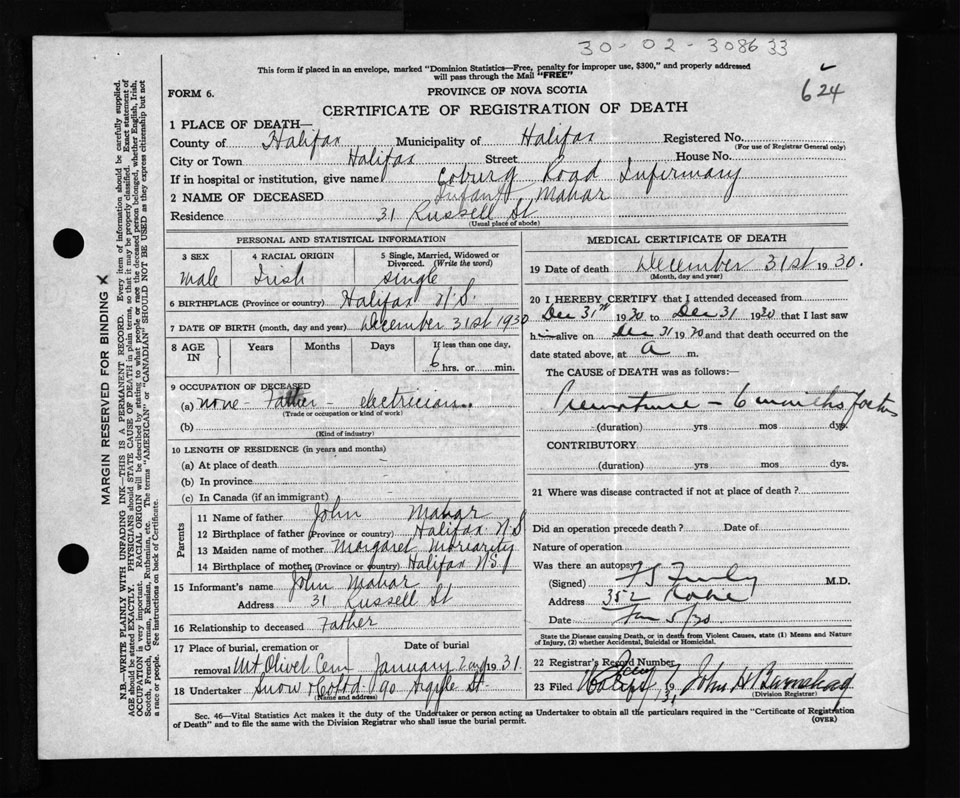 30-02-308633
This form if placed in an envelope, marked "Dominion Statistics—Free, penalty for improper use, $300," and properly addressed
will pass through the Mail "FREE"
624
FORM 6.
PROVINCE OF NOVA SCOTIA
CERTIFICATE OF REGISTRATION OF DEATH
1 PLACE OF DEATH—
County of Halifax Municipality of Halifax Registered No.
(For use of Registrar General only)
City or Town Halifax Street House No.
If in hospital or institution, give name Coburg Road Infirmary
2 NAME OF DECEASED Infant Mahar
Residence 31 Russell St
(Usual place of abode)
PERSONAL AND STATISTICAL INFORMATION
3 SEX 4 RACIAL ORIGIN 5 Single, Married, Widowed or Divorced. (Write the word)
male Irish single
6 BIRTHPLACE (Province or country) Halifax N.S.
7 DATE OF BIRTH (month, day and year) December 31st 1930
8 AGE IN Years Months Days If less than one day,
6 hrs. or min.
9 OCCUPATION OF DECEASED
(a) none - Father - electrician
(Trade or occupation or kind of work)
(b)
(Kind of industry)
10 LENGTH OF RESIDENCE (in years and months)
(a) At place of death
(b) In province
(c) In Canada (if an immigrant)
Parents
11 Name of father John Mahar
12 Birthplace of father (Province or country) Halifax N.S
13 Maiden name of mother Margaret Moriarity
14 Birthplace of mother (Province or country) Halifax N.S.
15 Informant's name John Mahar
Address 31 Russell St
16 Relationship to deceased Father
17 Place of burial, cremation or removal Date of burial
Mt Olivet Cem January 2nd 1931.
18 Undertaker Snow & Co Ltd 90 Argyle St
(Name and address)
MEDICAL CERTIFICATE OF DEATH
19 Date of death December 31st 1930.
(Month, day and year)
20 I HEREBY CERTIFY that I attended deceased from
Dec 31st 1930 to Dec 31 1930 that I last saw
h alive on Dec 31 1930 and that death occurred on the
date stated above, at a m.
The CAUSE of DEATH was as follows:—
Premature - 6 months foetus
(duration) yrs mos dys.
CONTRIBUTORY
(duration) yrs. mos. dys.
21 Where was disease contracted if not at place of death?
Did an operation precede death? Date of
Nature of operation
Was there an autopsy
(Signed) M.D.
Address 352
Date Jan 5/30
State the Disease causing Death, or in death from Violent Causes, state (1) Means and Nature
of Injury, (2) whether Accidental, Suicidal or Homicidal.
22 Registrar's Record Number
23 Filed 19 31 John H
(Division Registrar)
Sec. 46—Vital Statistics Act makes it the duty of the Undertaker or person acting as Undertaker to obtain all the particulars required in the "Certificate of Registration
of Death" and to file the same with the Division Registrar who shall issue the burial permit.
(OVER)
MARGIN RESERVED FOR BINDING
N.B.—WRITE PLAINLY WITH UNFADING INK—THIS IS A PERMANENT RECORD. Every item of information should be carefully supplied.
AGE should be stated EXACTLY. PHYSICIANS should STATE CAUSE OF DEATH in plain terms, so that it may be properly classified. Exact statement of
OCCUPATION is very important. RACIAL ORIGIN will be described by stating to what people or race the deceased person belonged, whether English, Irish,
Scotch, French, German, Russian, Ruthenian, etc. The terms "AMERICAN" or "CANADIAN" SHOULD NOT BE USED as they express citizenship but not
a race or people. See instructions on back of Certificate.